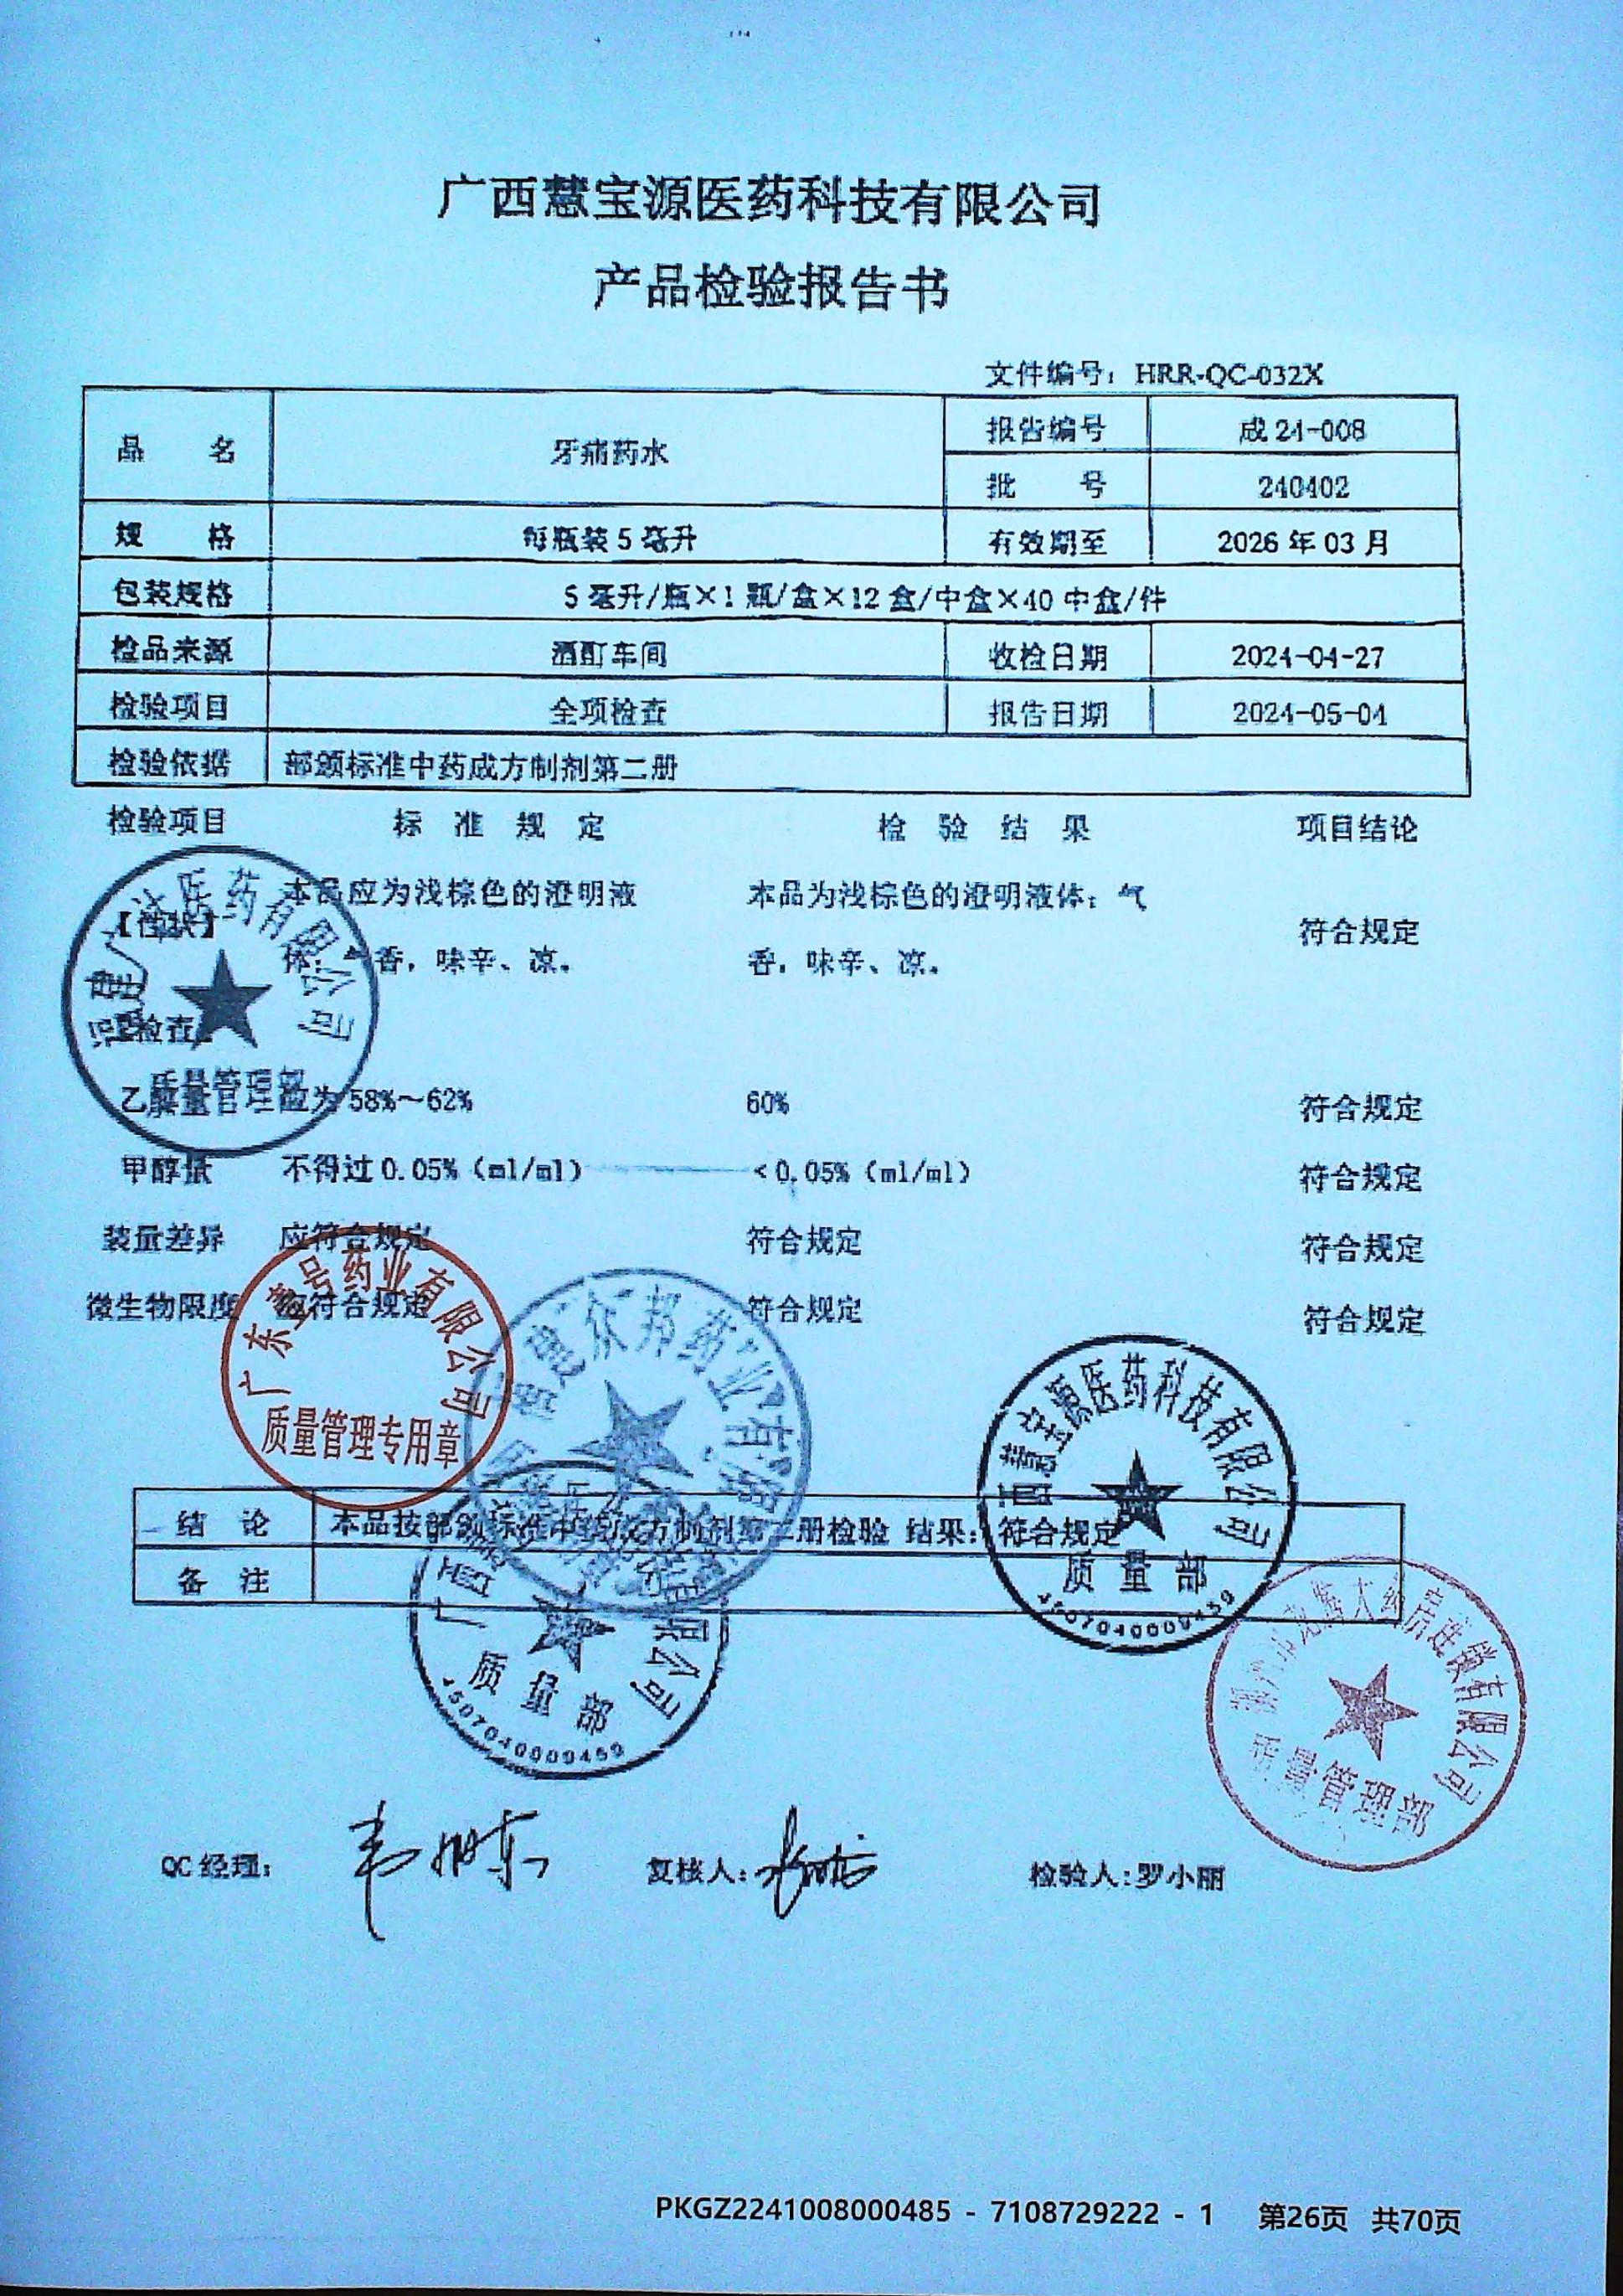 广西慧宝源医药科技有限公司
产品检验报告书
文件编号：HRR-QC-032X
品 名 牙痛药水 报告编号 成 24-008
批 号 240402
规 格 每瓶装 5 毫升 有效期至 2026 年 03 月
包装规格 5 毫升/瓶×1 瓶/盒×12 盒/中盒×40 中盒/件
检品来源 酒酊车间 收检日期 2024-04-27
检验项目 全项检查 报告日期 2024-05-04
检验依据 部颁标准中药成方制剂第二册
检验项目 标 准 规 定 检 验 结 果 项目结论
【性状】 本品应为浅棕色的澄明液 本品为浅棕色的澄明液体；气 符合规定
体；气香，味辛、凉。 香，味辛、凉。
【检查】
乙醇量 应为 58%～62% 60% 符合规定
甲醇量 不得过 0.05%（ml/ml） ＜0.05%（ml/ml） 符合规定
装量差异 应符合规定 符合规定 符合规定
微生物限度 应符合规定 符合规定 符合规定
医药有限公司
质量管理部
广东壹号药业有限公司
质量管理专用章
众邦药业有限
慧宝源医药科技有限公司
质量部
4507040009459
结 论 本品按部颁标准中药成方制剂第二册检验 结果：符合规定
备 注
有限公司
质量部
4507040009459
大药房连锁有限公司
质量管理部
QC 经理：
复核人：
检验人：罗小丽
PKGZ2241008000485 - 7108729222 - 1 第26页 共70页